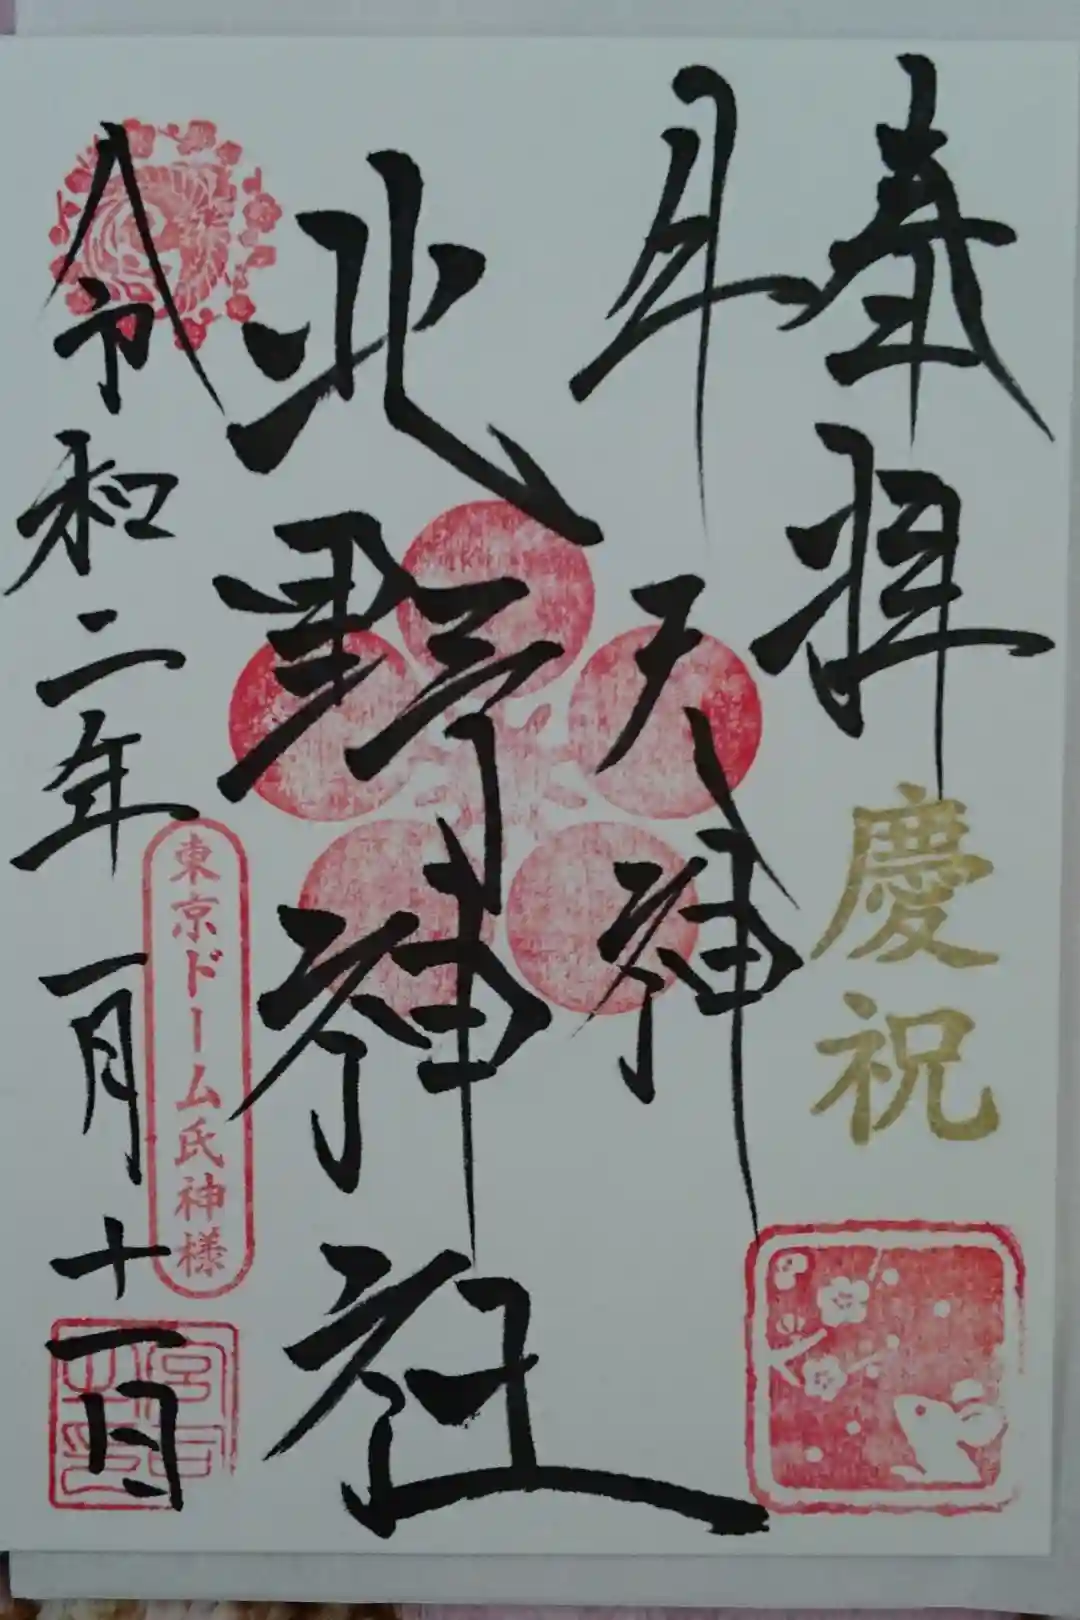 奉拝
慶祝
牛天神
北野神社
令和二年一月十一日
東京ドーム氏神様
宮司之印